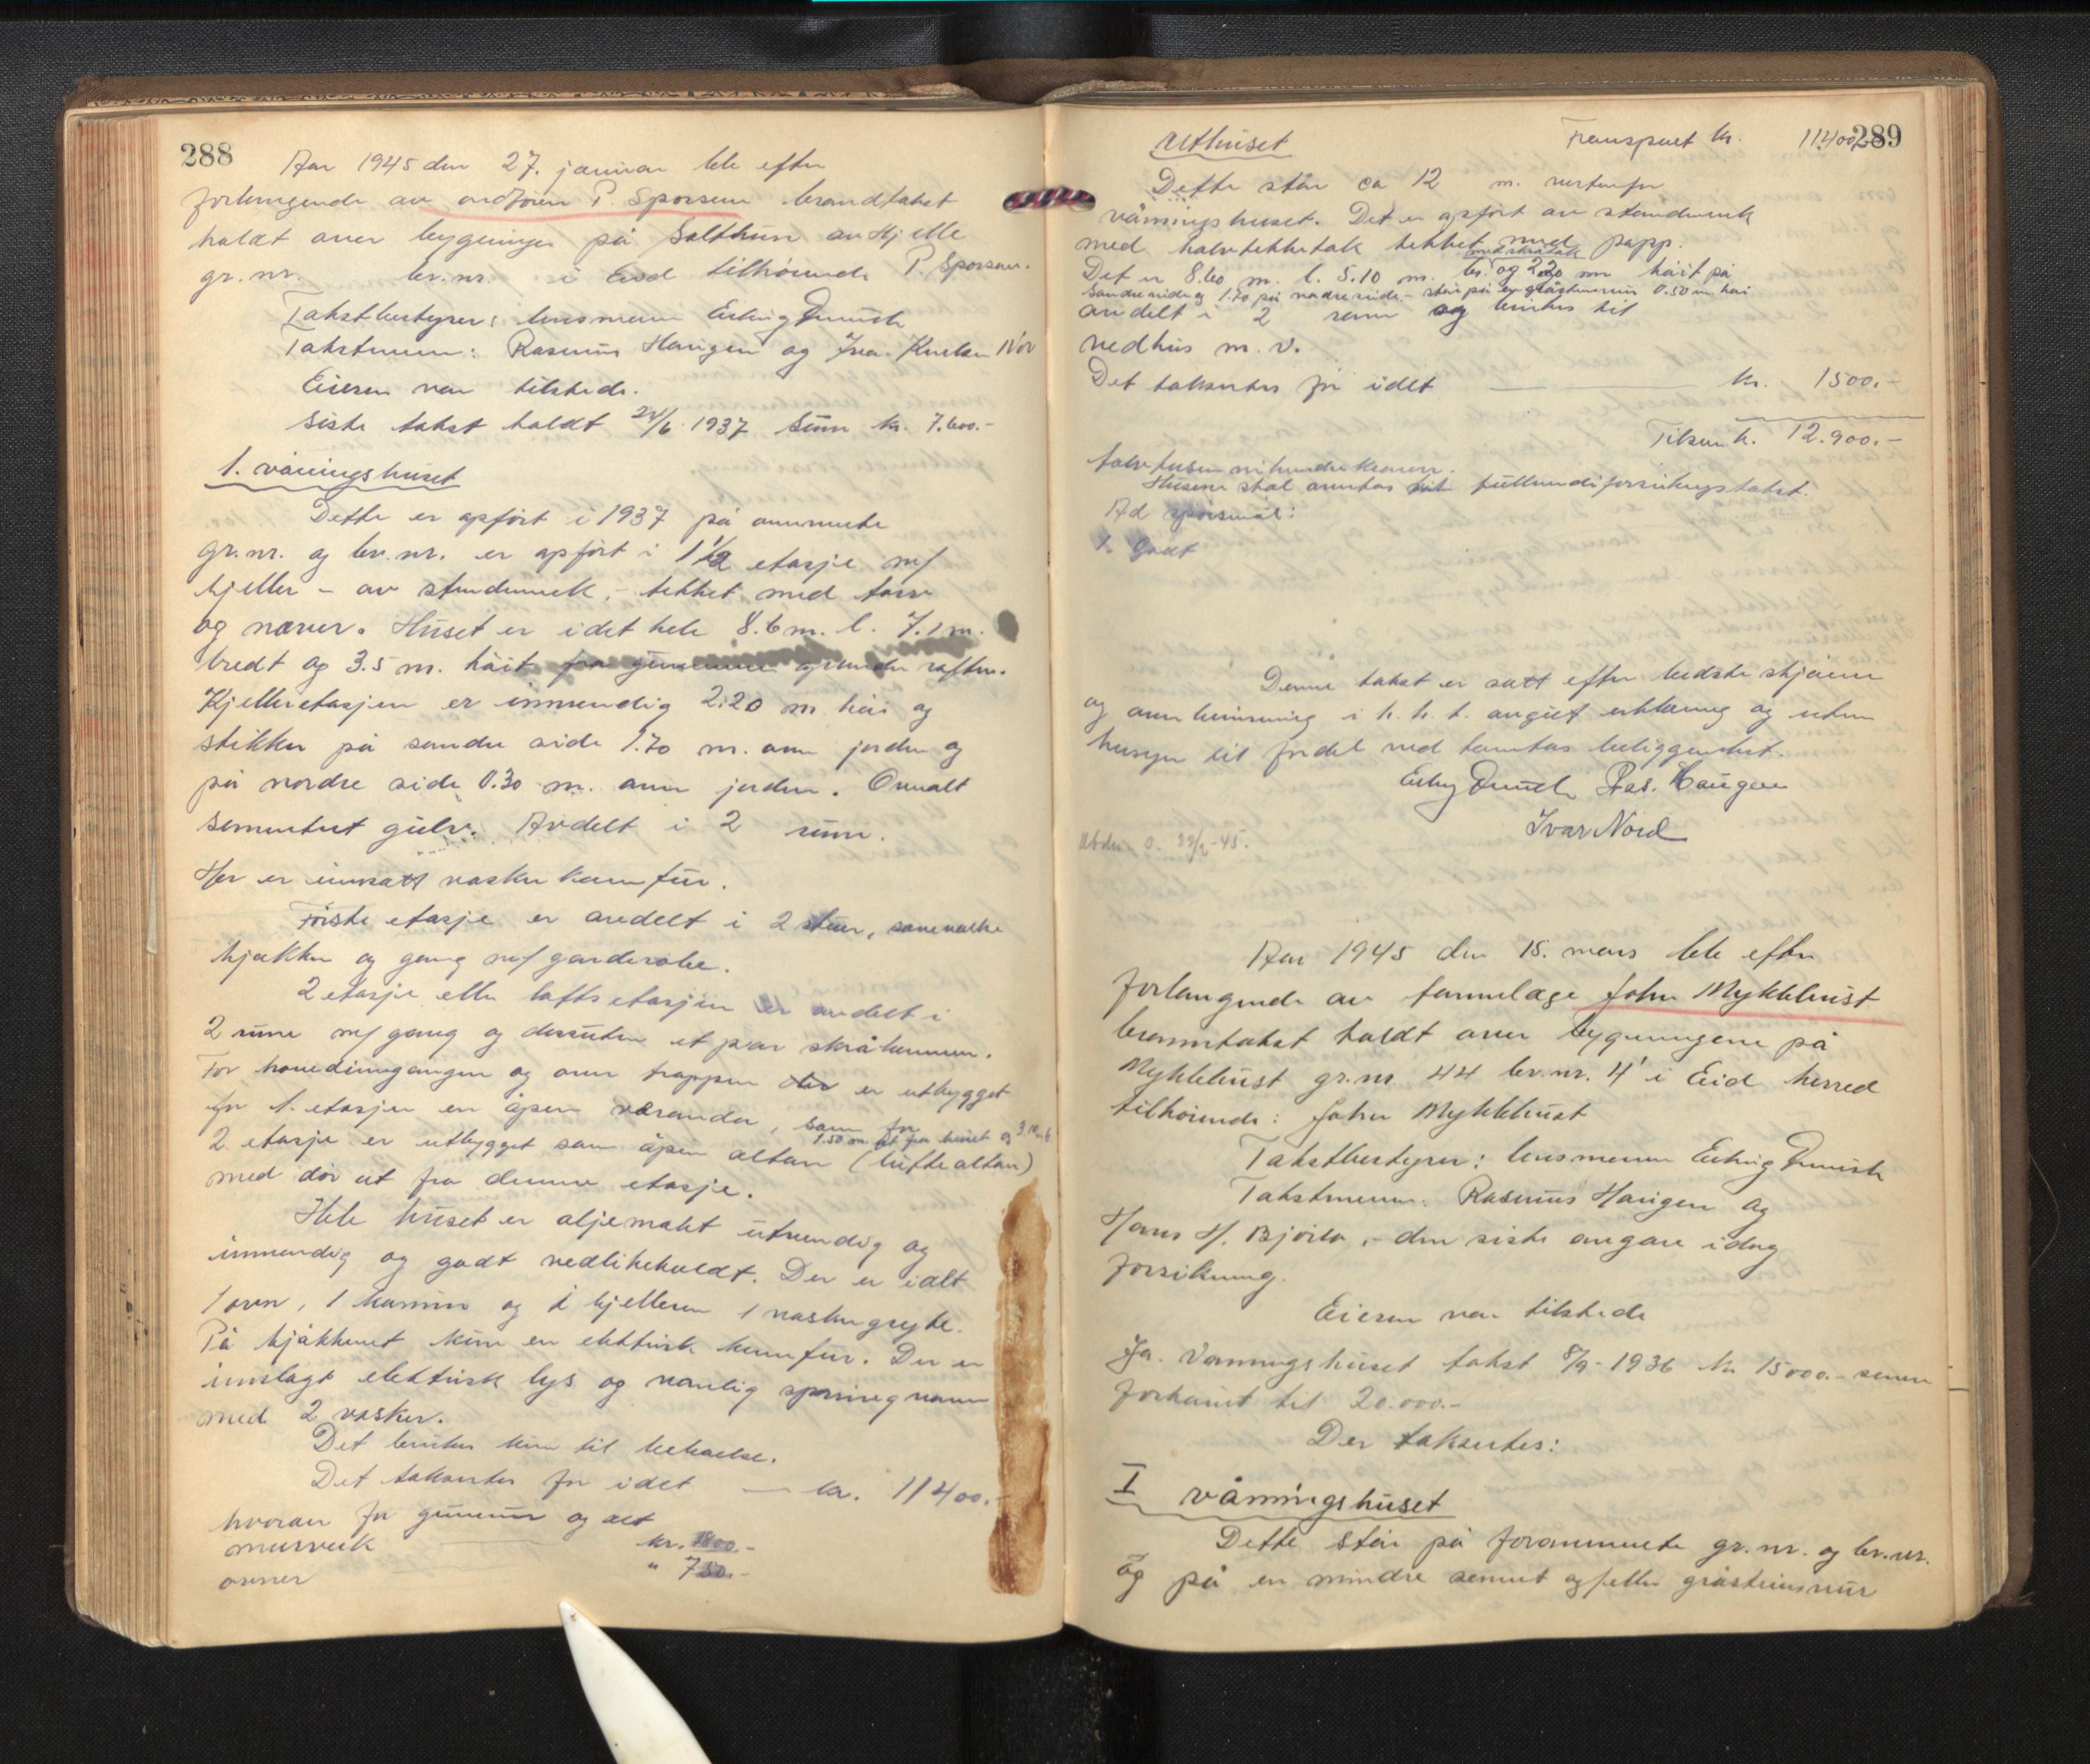 288
Aar 1945 den 27. januar ble efter
forlangende av ordfører P. Sporsem brandtakst
holdt over bygninger på Solthun av Hjelle
gr.nr. br.nr. i Eid tilhørende P. Sporsem.
Takstbestyrer: lensmann Erling
Takstmenn: Rasmus Haugen og Ivar Nor
Eieren var tilstede.
Siste takst holdt 24/6 1937 Sum kr. 7.600.-
1. våningshuset
Dette er opført i 1937 på ovennevnte
gr.nr. og br.nr. er opført i 1 1/2 etasje m/
kjeller - av stenderverk, - tekket med torv
og never. Huset er i det hele 8.6 m. l. 7.1 m.
bredt og 3.5 m. høit fra grunnmur og under raften.
Kjelleretasjen er innvendig 2.20 m høi og
stikker på søndre side 1.70 m. over jorden og
på nordre side 0.30 m. over jorden. Overalt
sementert gulv. Avdelt i 2 rum.
Her er innsatt vaskekomfur.
Første etasje er avdelt i 2 stuer,
kjøkken og gang m/ garderobe.
2 etasje eller loftsetasjen er avdelt i
2 rum m/ gang og dessuten et par skråkammen.
For hovedinngangen og over trappen er utbygget
for 1. etasjen en åpen veranda, som for
1.50 m ut fra huset og 3.10 m b.
2. etasje er utbygget som åpen altan (luftealtan)
med dør ut fra denne etasje.
Hele huset er oljemalt utvendig og
innvendig og godt vedlikeholdt. Der er i alt
1 ovn, 1 kamin og i kjelleren 1 vaskegryte.
På kjøkkenet kun en elektrisk komfur. Der er
innlagt elektrisk lys og vanlig springvann
med 2 vasker.
Det brukes kun til beboelse.
Det takseres for i det — kr. 11400.-
hvorav for grunnmur og alt
murverk — kr. 1800.-
ovner — " 750.-
289
Uthuset Transport kr. 11400
Dette står ca 12 m. vestenfor
våningshuset. Det er opført av stenderverk
med halvtekketak tekket med papp.
med skråtak
Det er 8.60 m. l. 5.10 m. br. og 2.20 m høit på
søndre side og 1.70 på nordre side - står på en gråstensmur 0.50 m. høi
avdelt i 2 rum og brukes til
vedhus m.v.
Det takseres for i det — kr. 1500.-
Tilsum kr. 12.900.-
tolvtusen nihundre kroner.
Husene skal ansettes til fullverdiforsikringstakst.
Ad spørsmål:
1. Godt
Denne takst er satt efter bedste skjønn
og overbevisning i h. h. t. avgitt erklæring og uten
hensyn til fordel ved tomtas beliggenhet.
Erling Ras. Haugen
Ivar Nord
0. 22/2-45.
Aar 1945 den 15. mars ble efter
forlangende av tannlæge John Myklebust
branntakst holdt over bygningene på
Myklebust gr.nr 44 br.nr. 4 i Eid herred
tilhørende: John Myklebust
Takstbestyrer: lensmann Erling
Takstmenn: Rasmus Haugen og
Hans H. Bjørlo, - den siste avgav idag
forsikring.
Eieren var tilstede
Våningshuset takst 8/9-1936 kr 15000.- senere
forhøiet til 20.000.-
Der takseres:
I våningshuset
Dette står på forannevnte gr.nr. og br.nr.
og på en mindre sement og/eller gråsteinsmur